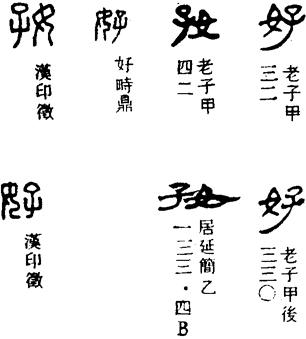 好
老子甲
三二
好
老子甲
四二
好
好時鼎
好
漢印徵
好
老子甲後
三三〇
好
居延簡乙
一三三·四B
好
漢印徵